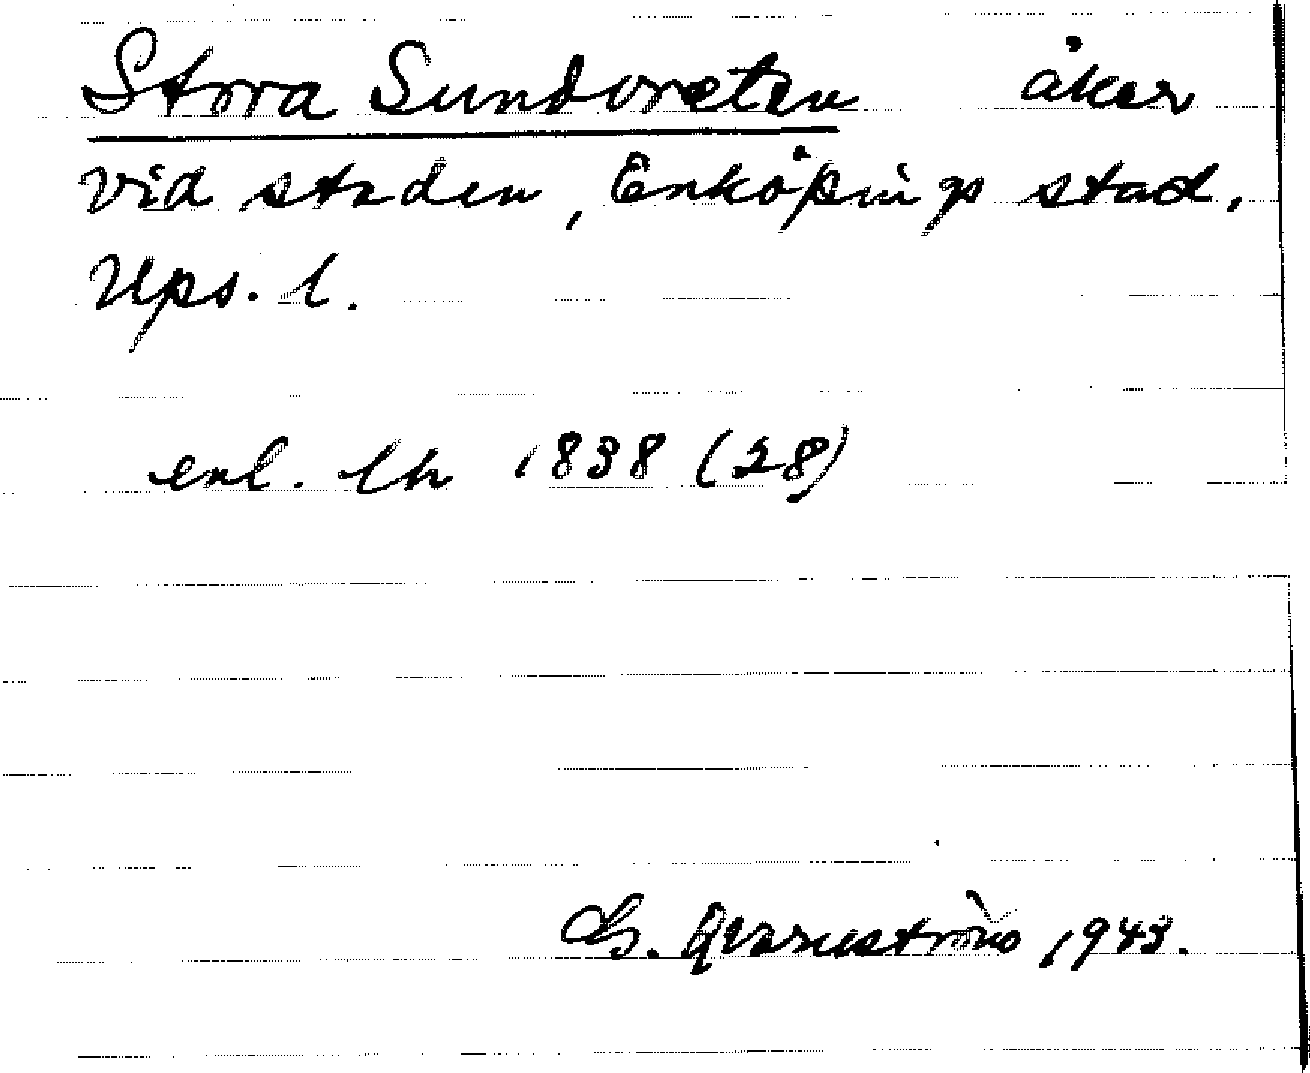 Stora Sundoreten åker
vid staden, Enköpings stad,
Ups. l.
enl. lh 1838 (28)
G. Qvarnström 1943.